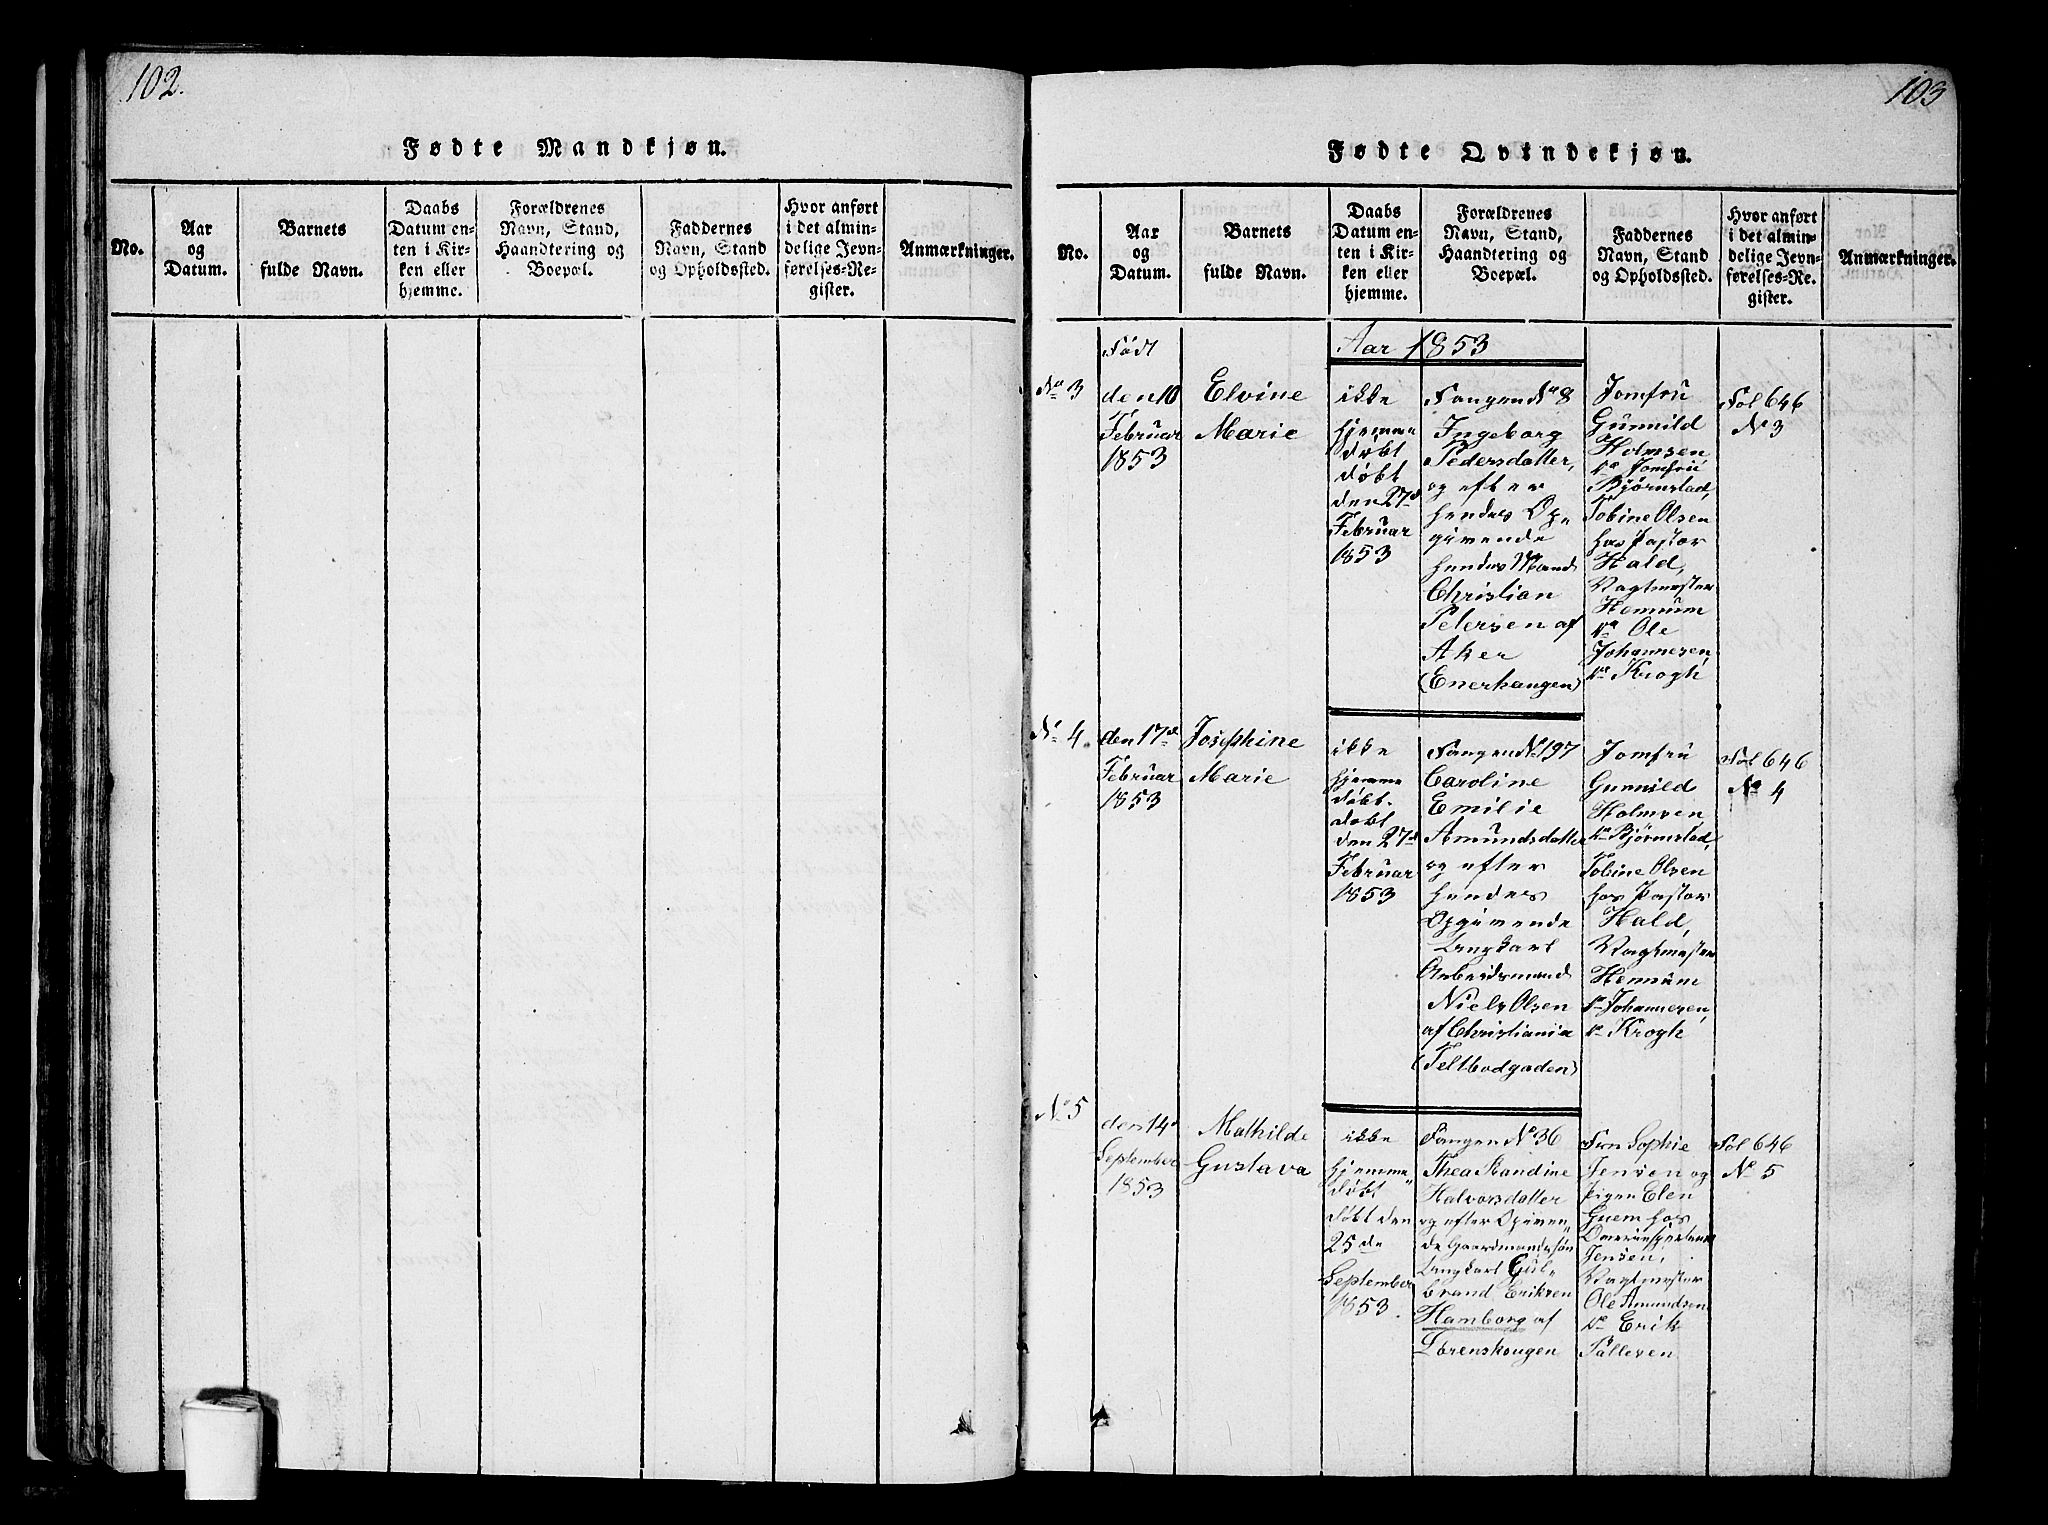 102.
Fødte Mandkjøn.
No.
Aar
og
Datum.
Barnets
fulde Navn.
Daabs
Datum en-
ten i Kir-
ken eller
hjemme.
Forældrenes
Navn, Stand,
Haandtering og
Boepæl.
Faddernes
Navn, Stand
og Opholdssted.
Hvor anført
i det almin-
delige Jevn-
førelses-Re-
gister.
Anmærkninger.
103
Fødte Qvindekjøn.
No.
Aar
og
Datum.
Barnets
fulde Navn.
Daabs
Datum en-
ten i Kir-
ken eller
hjemme.
Forældrenes
Navn, Stand,
Haandtering og
Boepæl.
Faddernes
Navn, Stand
og Opholdssted.
Hvor anført
i det almin-
delige Jevn-
førelses-Re-
gister.
Anmærkninger.
Aar 1853
No 3
Født
den 10
Februar
1853
Elvine
Marie
ikke
hjemme
døbt
døbt
den 27d
Februar
1853
Fangen No 8
Ingeborg
Pedersdatter,
og efter
hendes Op-
givende
hendes Mand
Christian
Petersen af
Aker
(Enerhaugen)
Jomfru
Gunnild
Holmsen
do Jomfru
Bjørnstad,
Tobine Olsen
hos Pastor
Hald,
Vagtmester
Hemmum
do Ole
Johannesen
do Krogh
Fol 646
No 3
No 4
den 17d
Februar
1853
Josephine
Marie
ikke
hjemme
døbt.
døbt
den 27d
Februar
1853
Fangen No 197
Caroline
Emilie
Amundsdatter
og efter
hendes
Opgivende
Ungkarl
Arbeidsmand
Niels Olsen
af Christiania
(Teltbodgaden)
Jomfru
Gunnild
Holmsen,
do Bjørnstad,
Tobine Olsen
hos Pastor
Hald,
Vagtmester
Hemmum
do Johannesen,
do Krogh
Fol 646
No 4
No 5
den 14d
September
1853
Mathilde
Gustava
ikke
hjemme
døbt
døbt den
25de
September
1853.
Fangen No 36
Thea Randine
Halvorsdatter
og efter Opgiven-
de Gaardmandssøn
Ungkarl Gul-
brand Eriksen
Hamborg af
Lørenskougen
Fru Sophie
Jensen og
Pigen Elen
Guem hos
Jensen,
Vagtmester
Ole Amundsen
do Erik
Pållesen
Fol 646
No 5